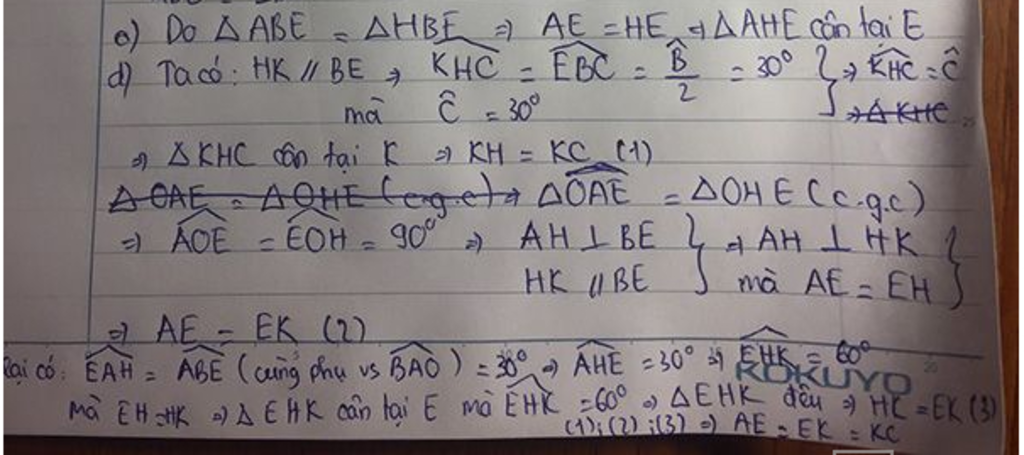 c) Do △ABE = △HBE ⇒ AE = HE ⇒ △AHE cân tại E
d) Ta có: HK // BE ⇒ KHC = EBC = B/2 = 30° } ⇒ KHC = Ĉ
mà Ĉ = 30° ⇒ △KHC
⇒ △KHC cân tại K ⇒ KH = KC (1)
△OAE = △OHE (c.g.c) ⇒ △OAE = △OHE (c.g.c)
⇒ AOE = EOH = 90° ⇒ AH ⊥ BE } ⇒ AH ⊥ HK }
HK // BE mà AE = EH
⇒ AE = EK (2)
Lại có: EAH = ABE (cùng phụ vs BAO) = 30° ⇒ AHE = 30° ⇒ EHK = 60°
KOKUYO
Mà EH = HK ⇒ △EHK cân tại E mà EHK = 60° ⇒ △EHK đều ⇒ HK = EK (3)
(1);(2);(3) ⇒ AE = EK = KC